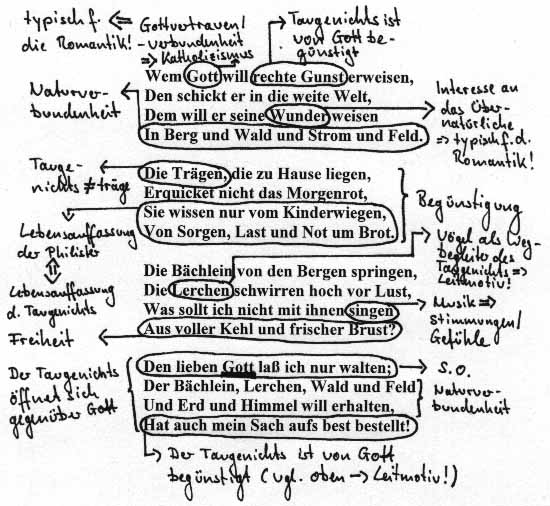 typisch f.
die Romantik!
⇐ Gottvertrauen/
-verbundenheit
⇒ Katholizismus
Taugenichts ist
von Gott be-
günstigt
Wem Gott will rechte Gunst erweisen,
Den schickt er in die weite Welt,
Dem will er seine Wunder weisen
In Berg und Wald und Strom und Feld.
Naturver-
bundenheit
Interesse an
das Über-
natürliche
⇒ typisch f. d.
Romantik!
Die Trägen, die zu Hause liegen,
Erquicket nicht das Morgenrot,
Sie wissen nur vom Kinderwiegen,
Von Sorgen, Last und Not um Brot.
Tauge-
nichts ≠ träge
Lebensauffassung
der Philister
⇕
Lebensauffassung
d. Taugenichts
Begünstigung
Die Bächlein von den Bergen springen,
Die Lerchen schwirren hoch vor Lust,
Was sollt ich nicht mit ihnen singen
Aus voller Kehl und frischer Brust?
Freiheit
Vögel als Weg-
begleiter des
Taugenichts ⇒
Leitmotiv!
Musik ⇒
Stimmungen/
Gefühle
Den lieben Gott laß ich nur walten;
Der Bächlein, Lerchen, Wald und Feld
Und Erd und Himmel will erhalten,
Hat auch mein Sach aufs best bestellt!
Der Taugenichts
öffnet sich
gegenüber Gott
s.o.
Naturver-
bundenheit
Der Taugenichts ist von Gott
begünstigt (vgl. oben → Leitmotiv!)